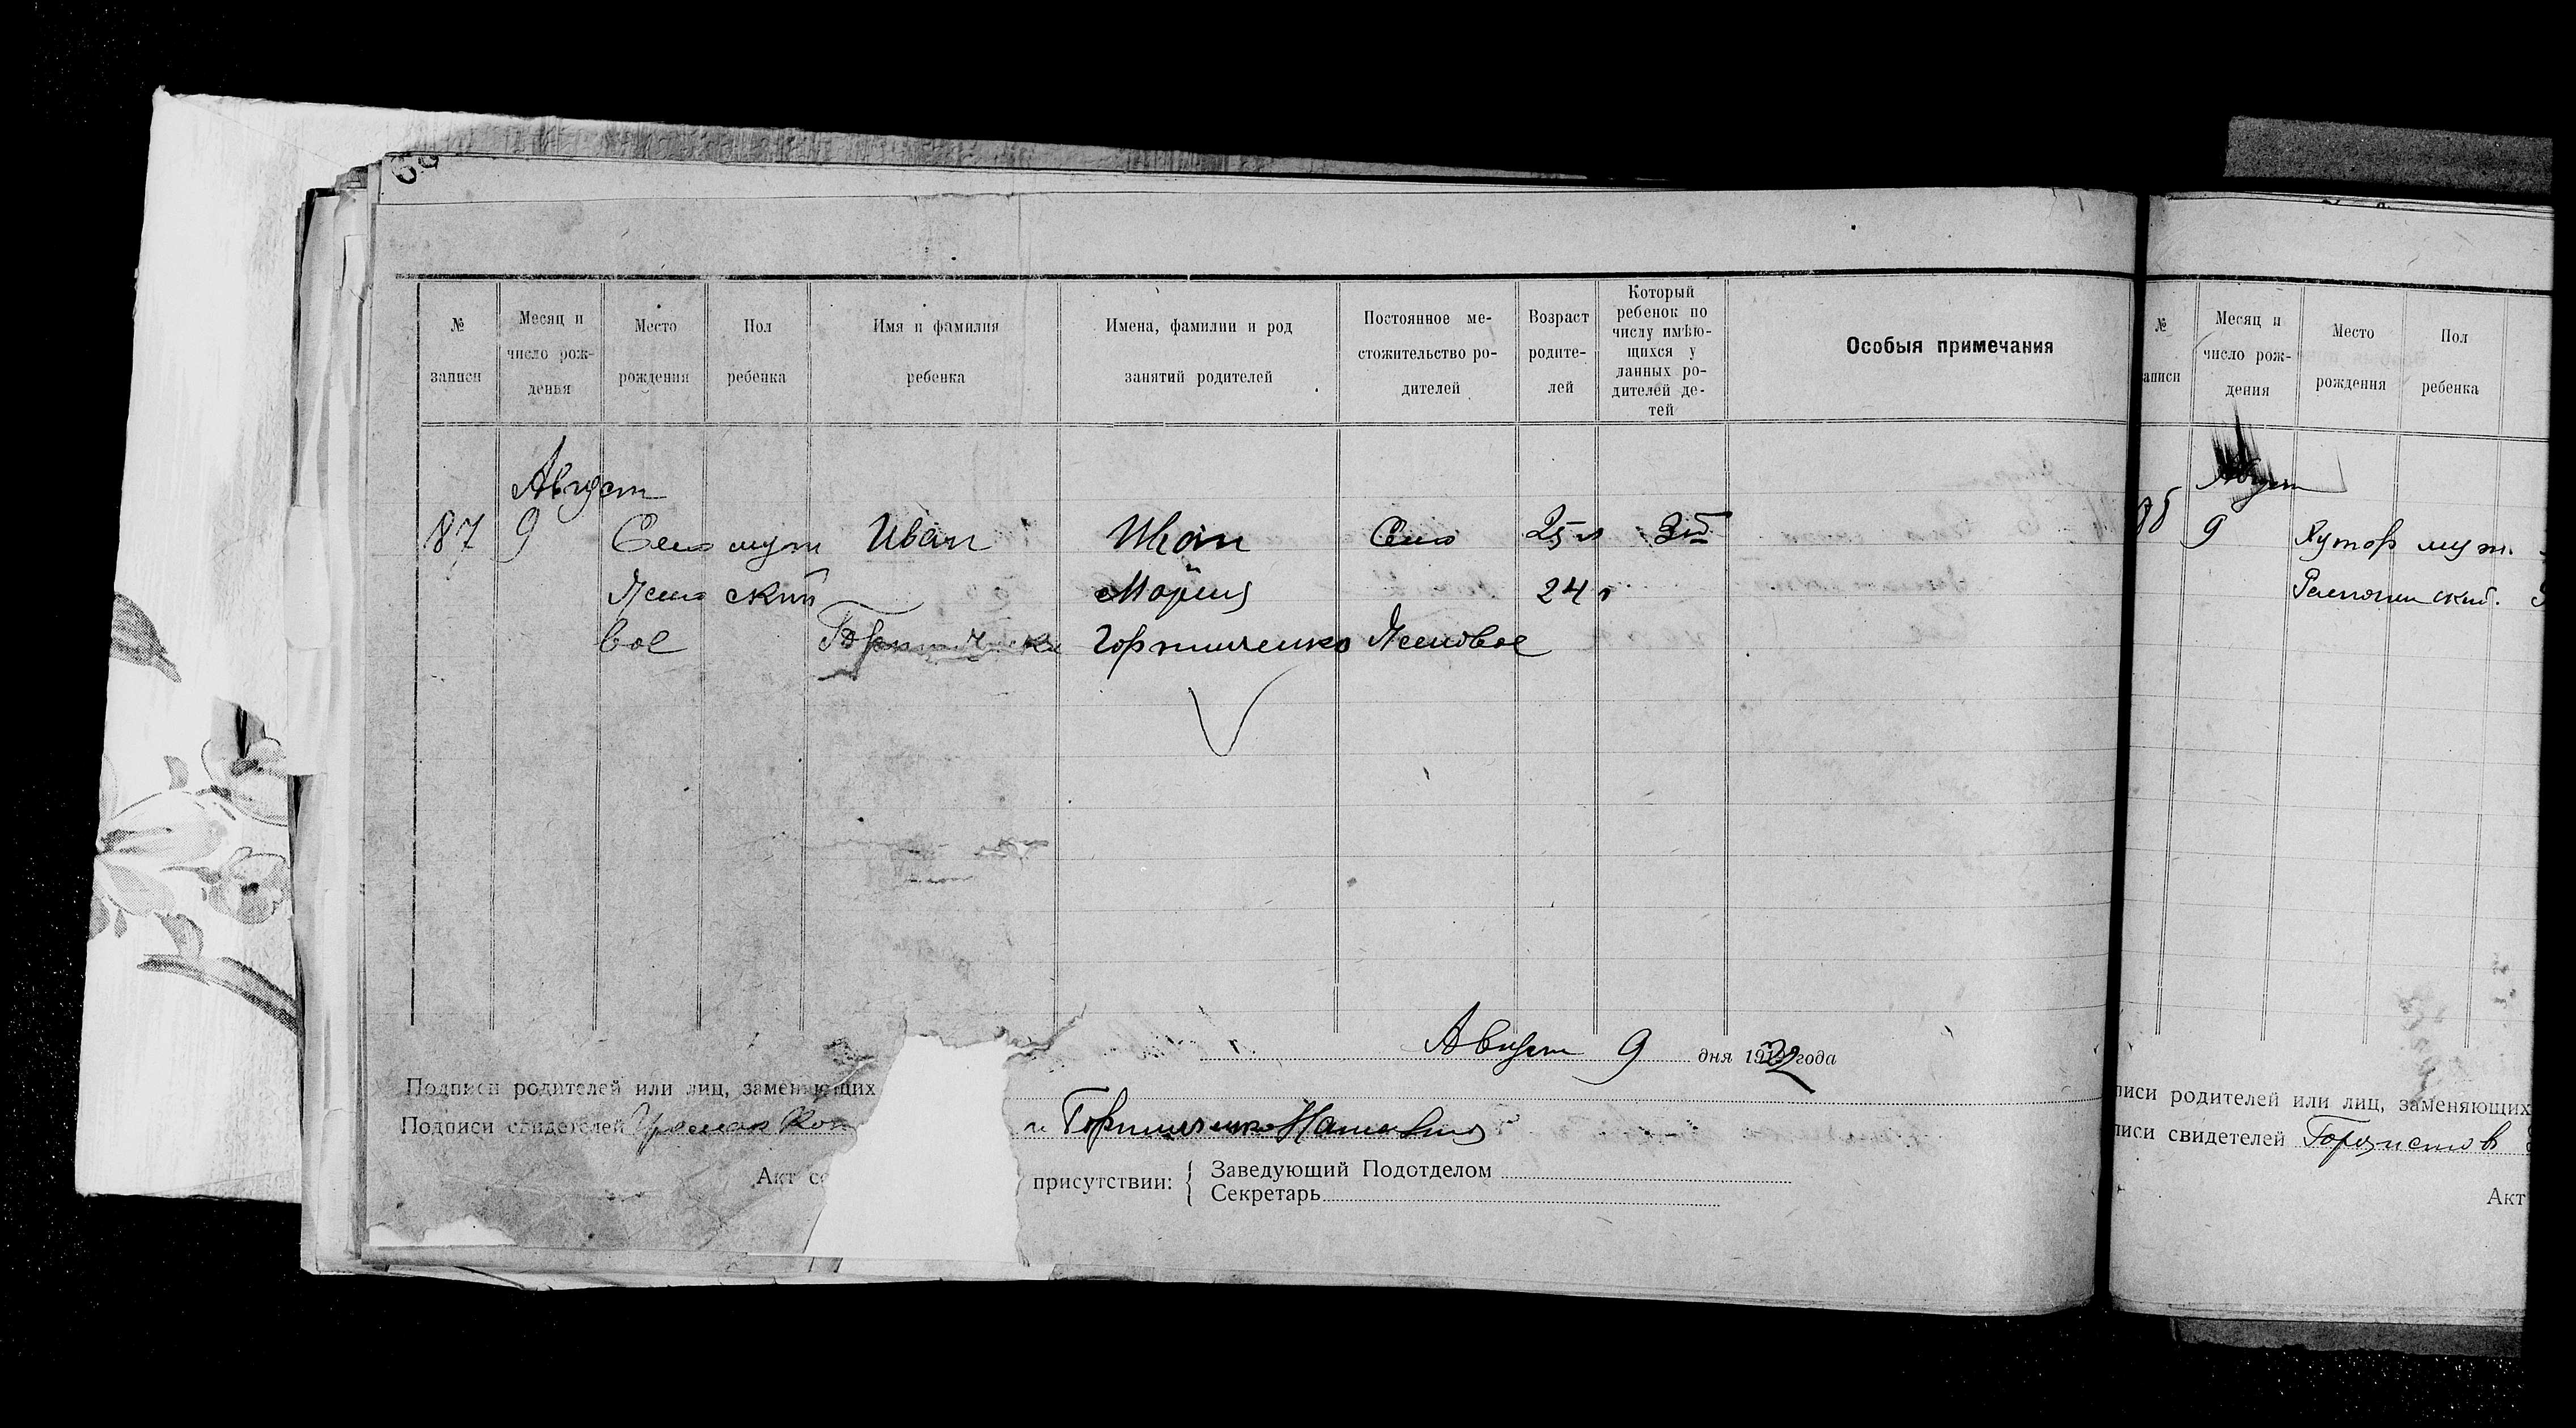 № записи
Месяц и число рожденья
Место рождения
Пол ребенка
Имя и фамилия ребенка
Имена, фамилии и род занятий родителей
Постоянное местожительство родителей
Возраст родителей
Который ребенок по числу имѣющихся у данных родителей детей
Особыя примечания
Август
87 9 Село муж Иван Иван Село 25 л 3й
Ясено ский Мария 24 г
вое Горпинченко Ясеновое
Август 9 дня 1922 года
Подписи родителей или лиц, заменяющих
Подписи свидетелей
и Горпинченко
Акт со
присутствии:
Заведующий Подотделом
Секретарь
№ аписи
Месяц и число рождения
Место рождения
Пол ребенка
Август
9 Хутор муж.
ский.
писи родителей или лиц, заменяющих
писи свидетелей
Акт